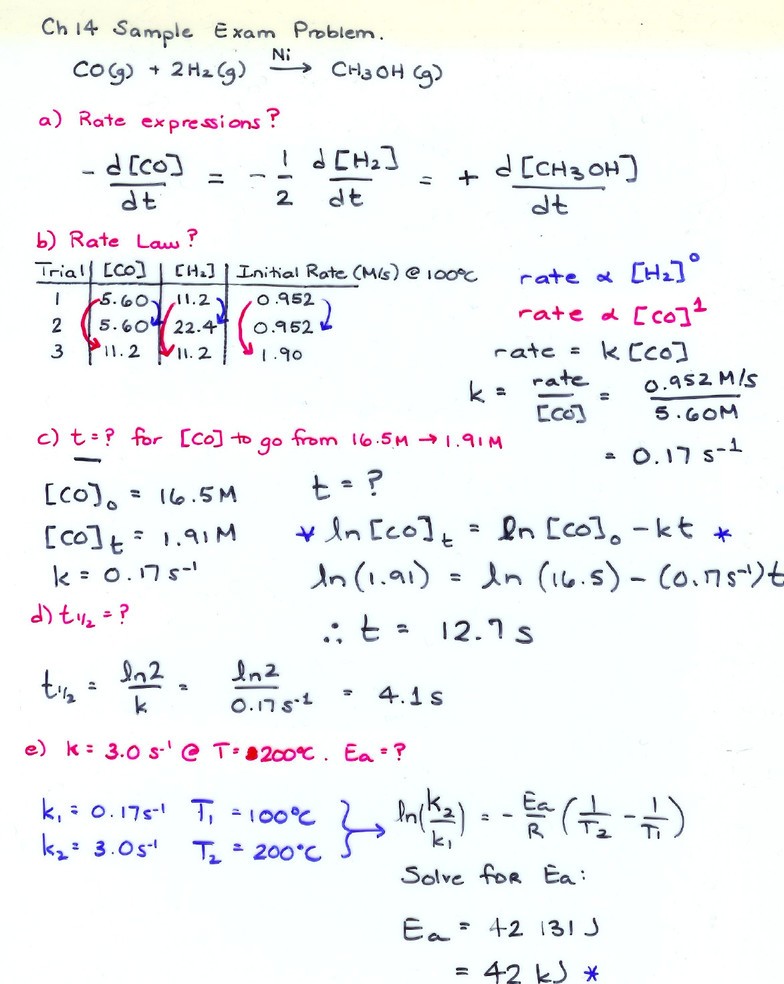 Ch 14 Sample Exam Problem.
CO(g) + 2H₂(g) —Ni→ CH₃OH (g)
a) Rate expressions?
- d[CO]/dt = - 1/2 d[H₂]/dt = + d[CH₃OH]/dt
b) Rate Law?
Trial | [CO] | [H₂] | Initial Rate (M/s) @ 100°C
1 | 5.60 | 11.2 | 0.952
2 | 5.60 | 22.4 | 0.952
3 | 11.2 | 11.2 | 1.90
rate ∝ [H₂]⁰
rate ∝ [CO]¹
rate = k[CO]
k = rate/[CO] = 0.952 M/s / 5.60M
= 0.17 s⁻¹
c) t = ? for [CO] to go from 16.5M → 1.91M
[CO]₀ = 16.5M
[CO]t = 1.91M
k = 0.17 s⁻¹
t = ?
* ln[CO]t = ln[CO]₀ - kt *
ln(1.91) = ln(16.5) - (0.17s⁻¹)t
∴ t = 12.7 s
d) t½ = ?
t½ = ln2/k = ln2/0.17s⁻¹ = 4.1s
e) k = 3.0 s⁻¹ @ T = 200°C. Ea = ?
k₁ = 0.17s⁻¹ T₁ = 100°C
k₂ = 3.0s⁻¹ T₂ = 200°C
ln(k₂/k₁) = - Ea/R (1/T₂ - 1/T₁)
Solve for Ea:
Ea = 42 131 J
= 42 kJ *